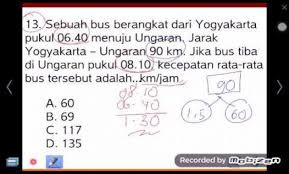 13. Sebuah bus berangkat dari Yogyakarta
pukul 06.40 menuju Ungaran. Jarak
Yogyakarta – Ungaran 90 km. Jika bus tiba
di Ungaran pukul 08.10, kecepatan rata-rata
bus tersebut adalah..km/jam
A. 60
B. 69
C. 117
D. 135
08.10
06.40
1.30
90
1.5
60
Recorded by Mobizen